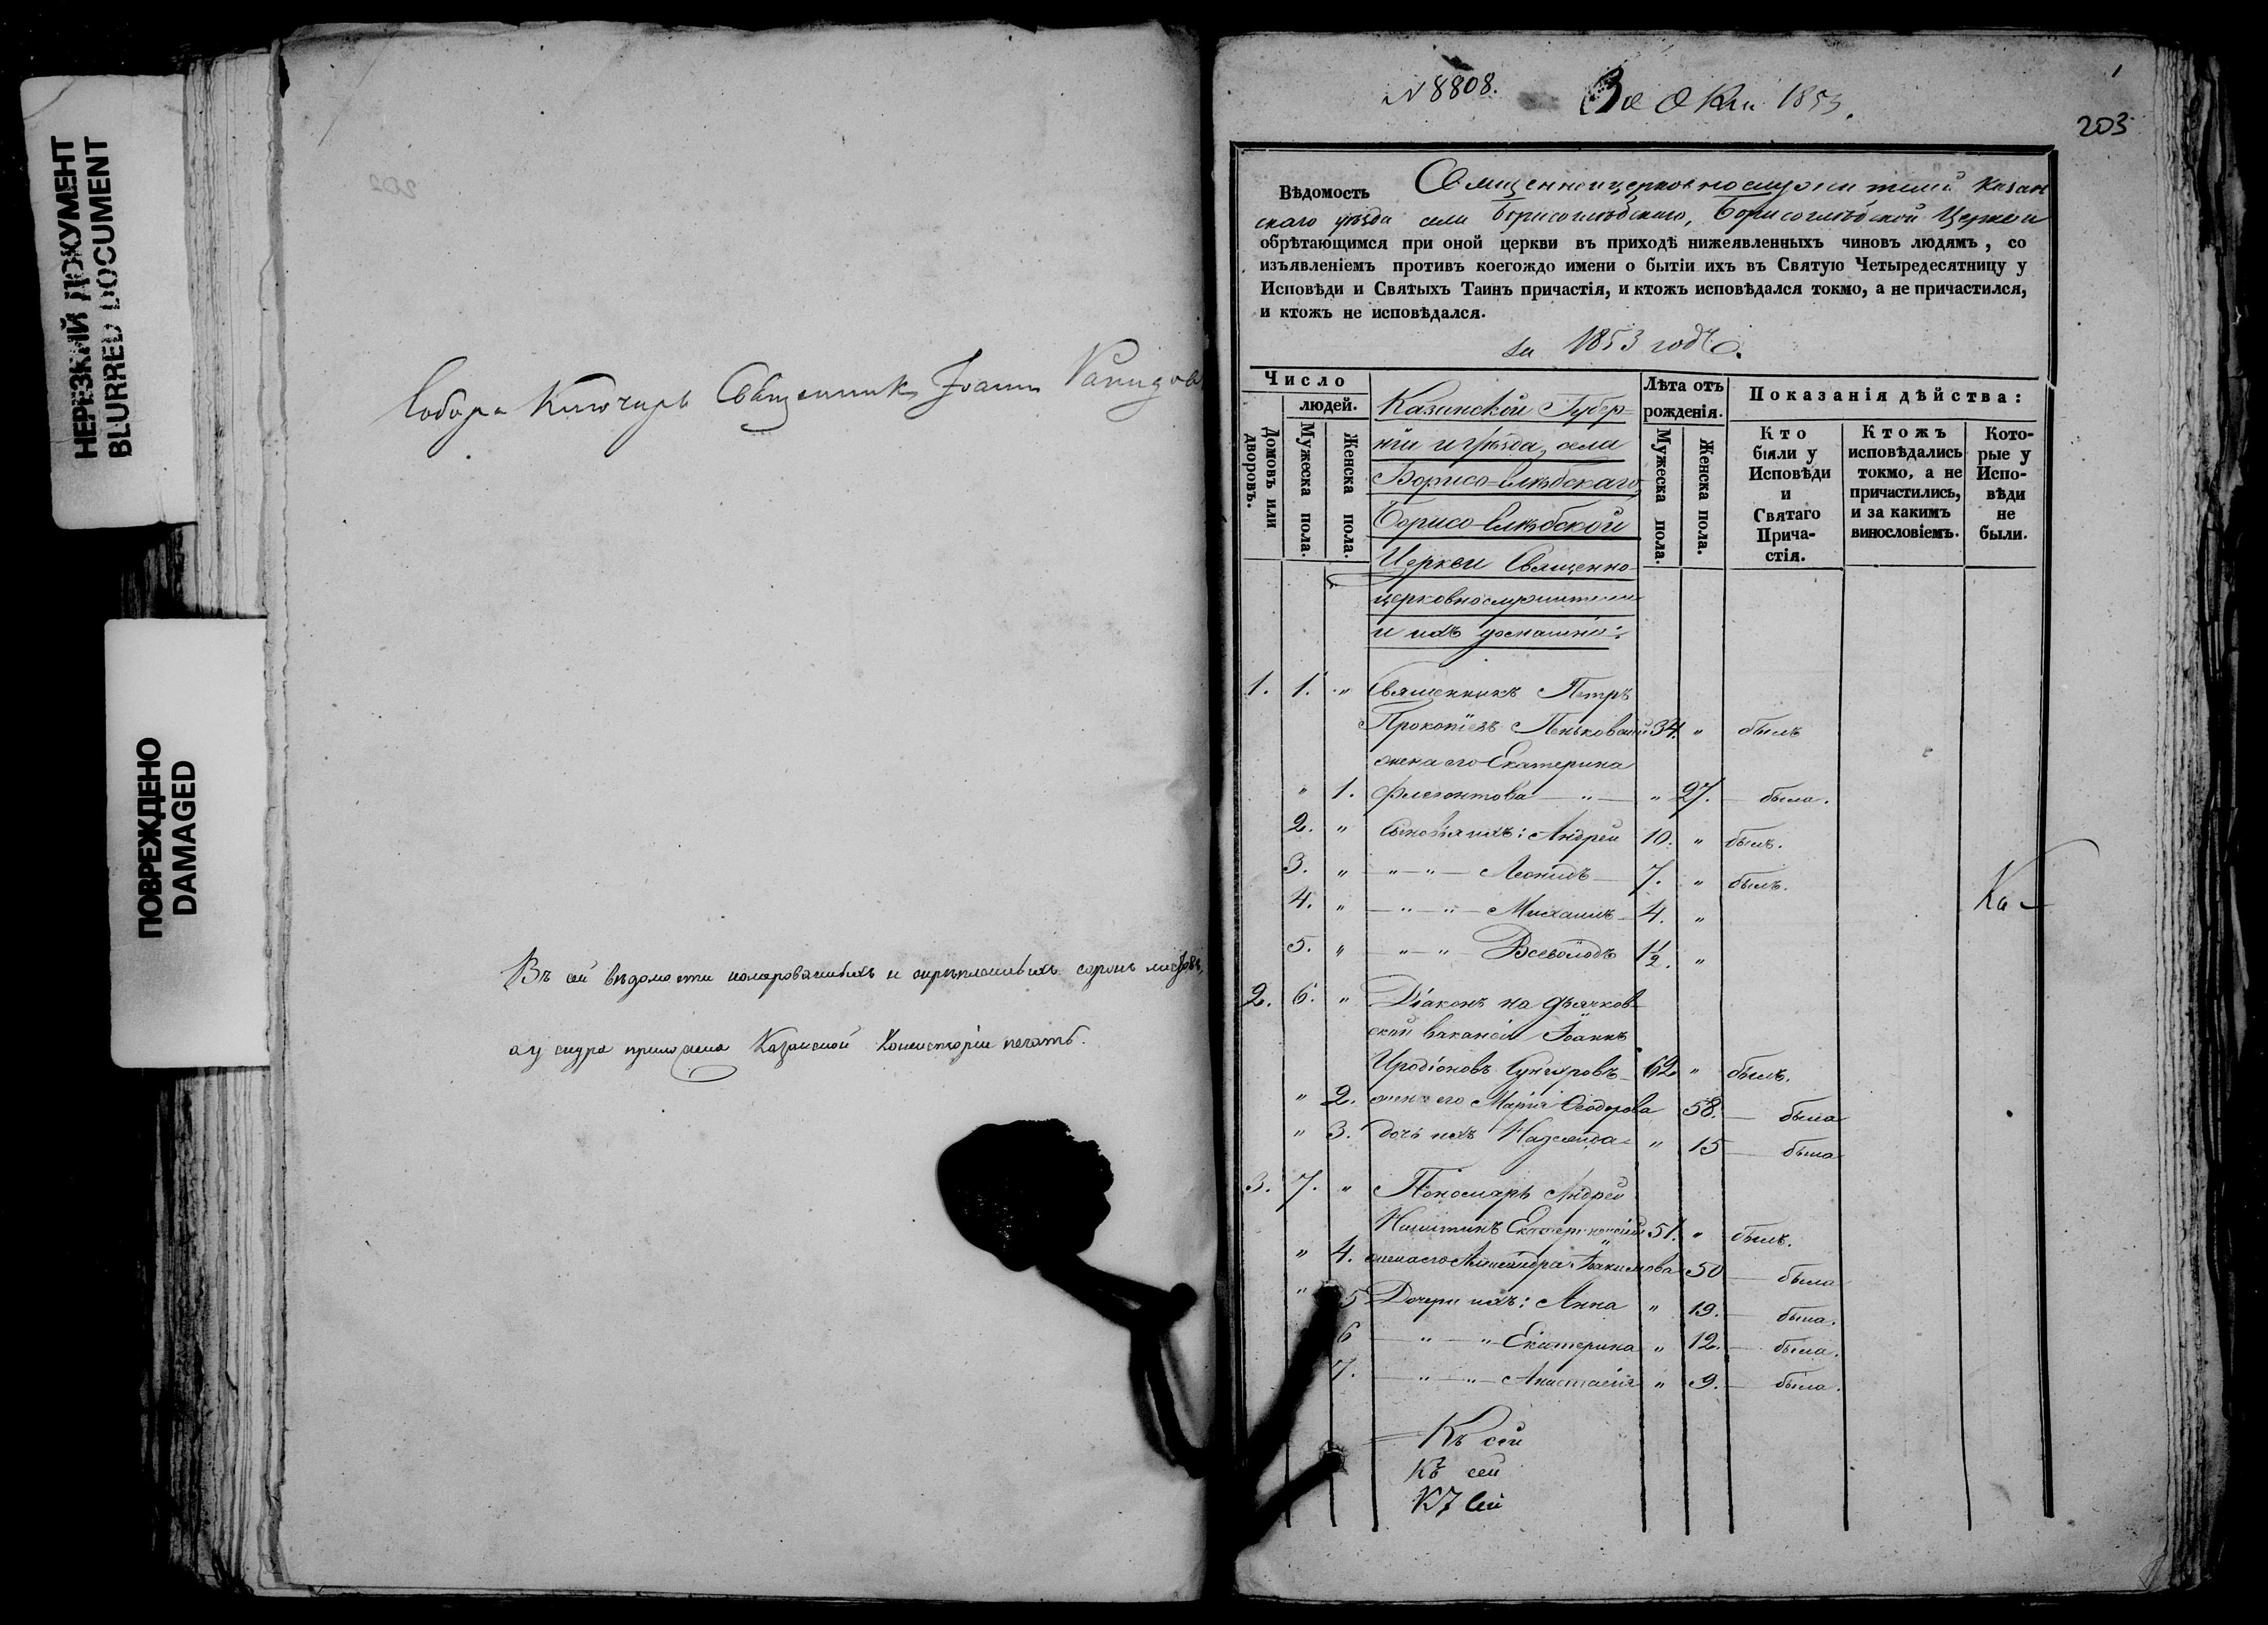 НЕРЕЗКИЙ ДОКУМЕНТ
BLURRED DOCUMENT
ПОВРЕЖДЕНО
DAMAGED
202
Собора Ключарь Священникъ Іоаннъ
Въ сей вѣдомости нумерованныхъ и скрѣпленныхъ сорокъ листовъ,
а у снура приложена Казанской Консисторіи печать.
N 8808. 1853.
1
203
Вѣдомость Священноцерковнослужителей Казан
скаго уѣзда села Борисоглѣбскаго, Борисоглѣбской Церкви
обрѣтающимся при оной церкви въ приходѣ нижеявленныхъ чиновъ людямъ, со
изъявленіемъ противъ коегождо имени о бытіи ихъ въ Святую Четыредесятницу у
Исповѣди и Святыхъ Таинъ причастія, и ктожъ исповѣдался токмо, а не причастился,
и ктожъ не исповѣдался.
за 1853 годъ.
Число
людей.
Домовъ или дворовъ.
Мужеска пола.
Женска пола.
Казанской Губер=
ніи и уѣзда, села
Борисо-Глѣбскаго,
Борисо-Глѣбской
Церкви Священно-
церковнослужители
и ихъ домашніе:
Лѣта отъ
рожденія.
Мужеска пола.
Женска пола.
Показанія дѣйства:
Кто
были у
Исповѣди
и
Святаго
Прича-
стія.
Ктожъ
исповѣдались
токмо, а не
причастились,
и за какимъ
винословіемъ.
Кото-
рые у
Испо-
вѣди
не
были.
1. 1. " Священникъ Петръ
Прокопіевъ Пеньковскій 34. " былъ
жена его Екатерина
" 1. Флегонтова — " — " 27. — была.
2. " Сыновья ихъ: Андрей 10. " былъ.
3. " " — " — Леонидъ 7. " былъ.
4. " — " — " — Михаилъ 4. "
5. " " — " Всеволодъ 1 1/2. "
2. 6. " Діаконъ на дьячков-
ской вакансіи Іоаннъ
Иродіоновъ 62 " былъ.
" 2. жена его Марія Ѳеодорова 58. — была
" 3. дочь ихъ Надежда " 15 — была
3. 7. " Пономарь Андрей
Никитинъ 51. " былъ.
" 4. жена его Александра Іоакимова 50 — была
" 5 Дочери ихъ: Анна " 19. — была.
6 — " — " — Екатерина " 12. — была.
7. — " — " — Анастасія " 9. — была.
Ка —
Къ сей
Къ сей
Къ сей